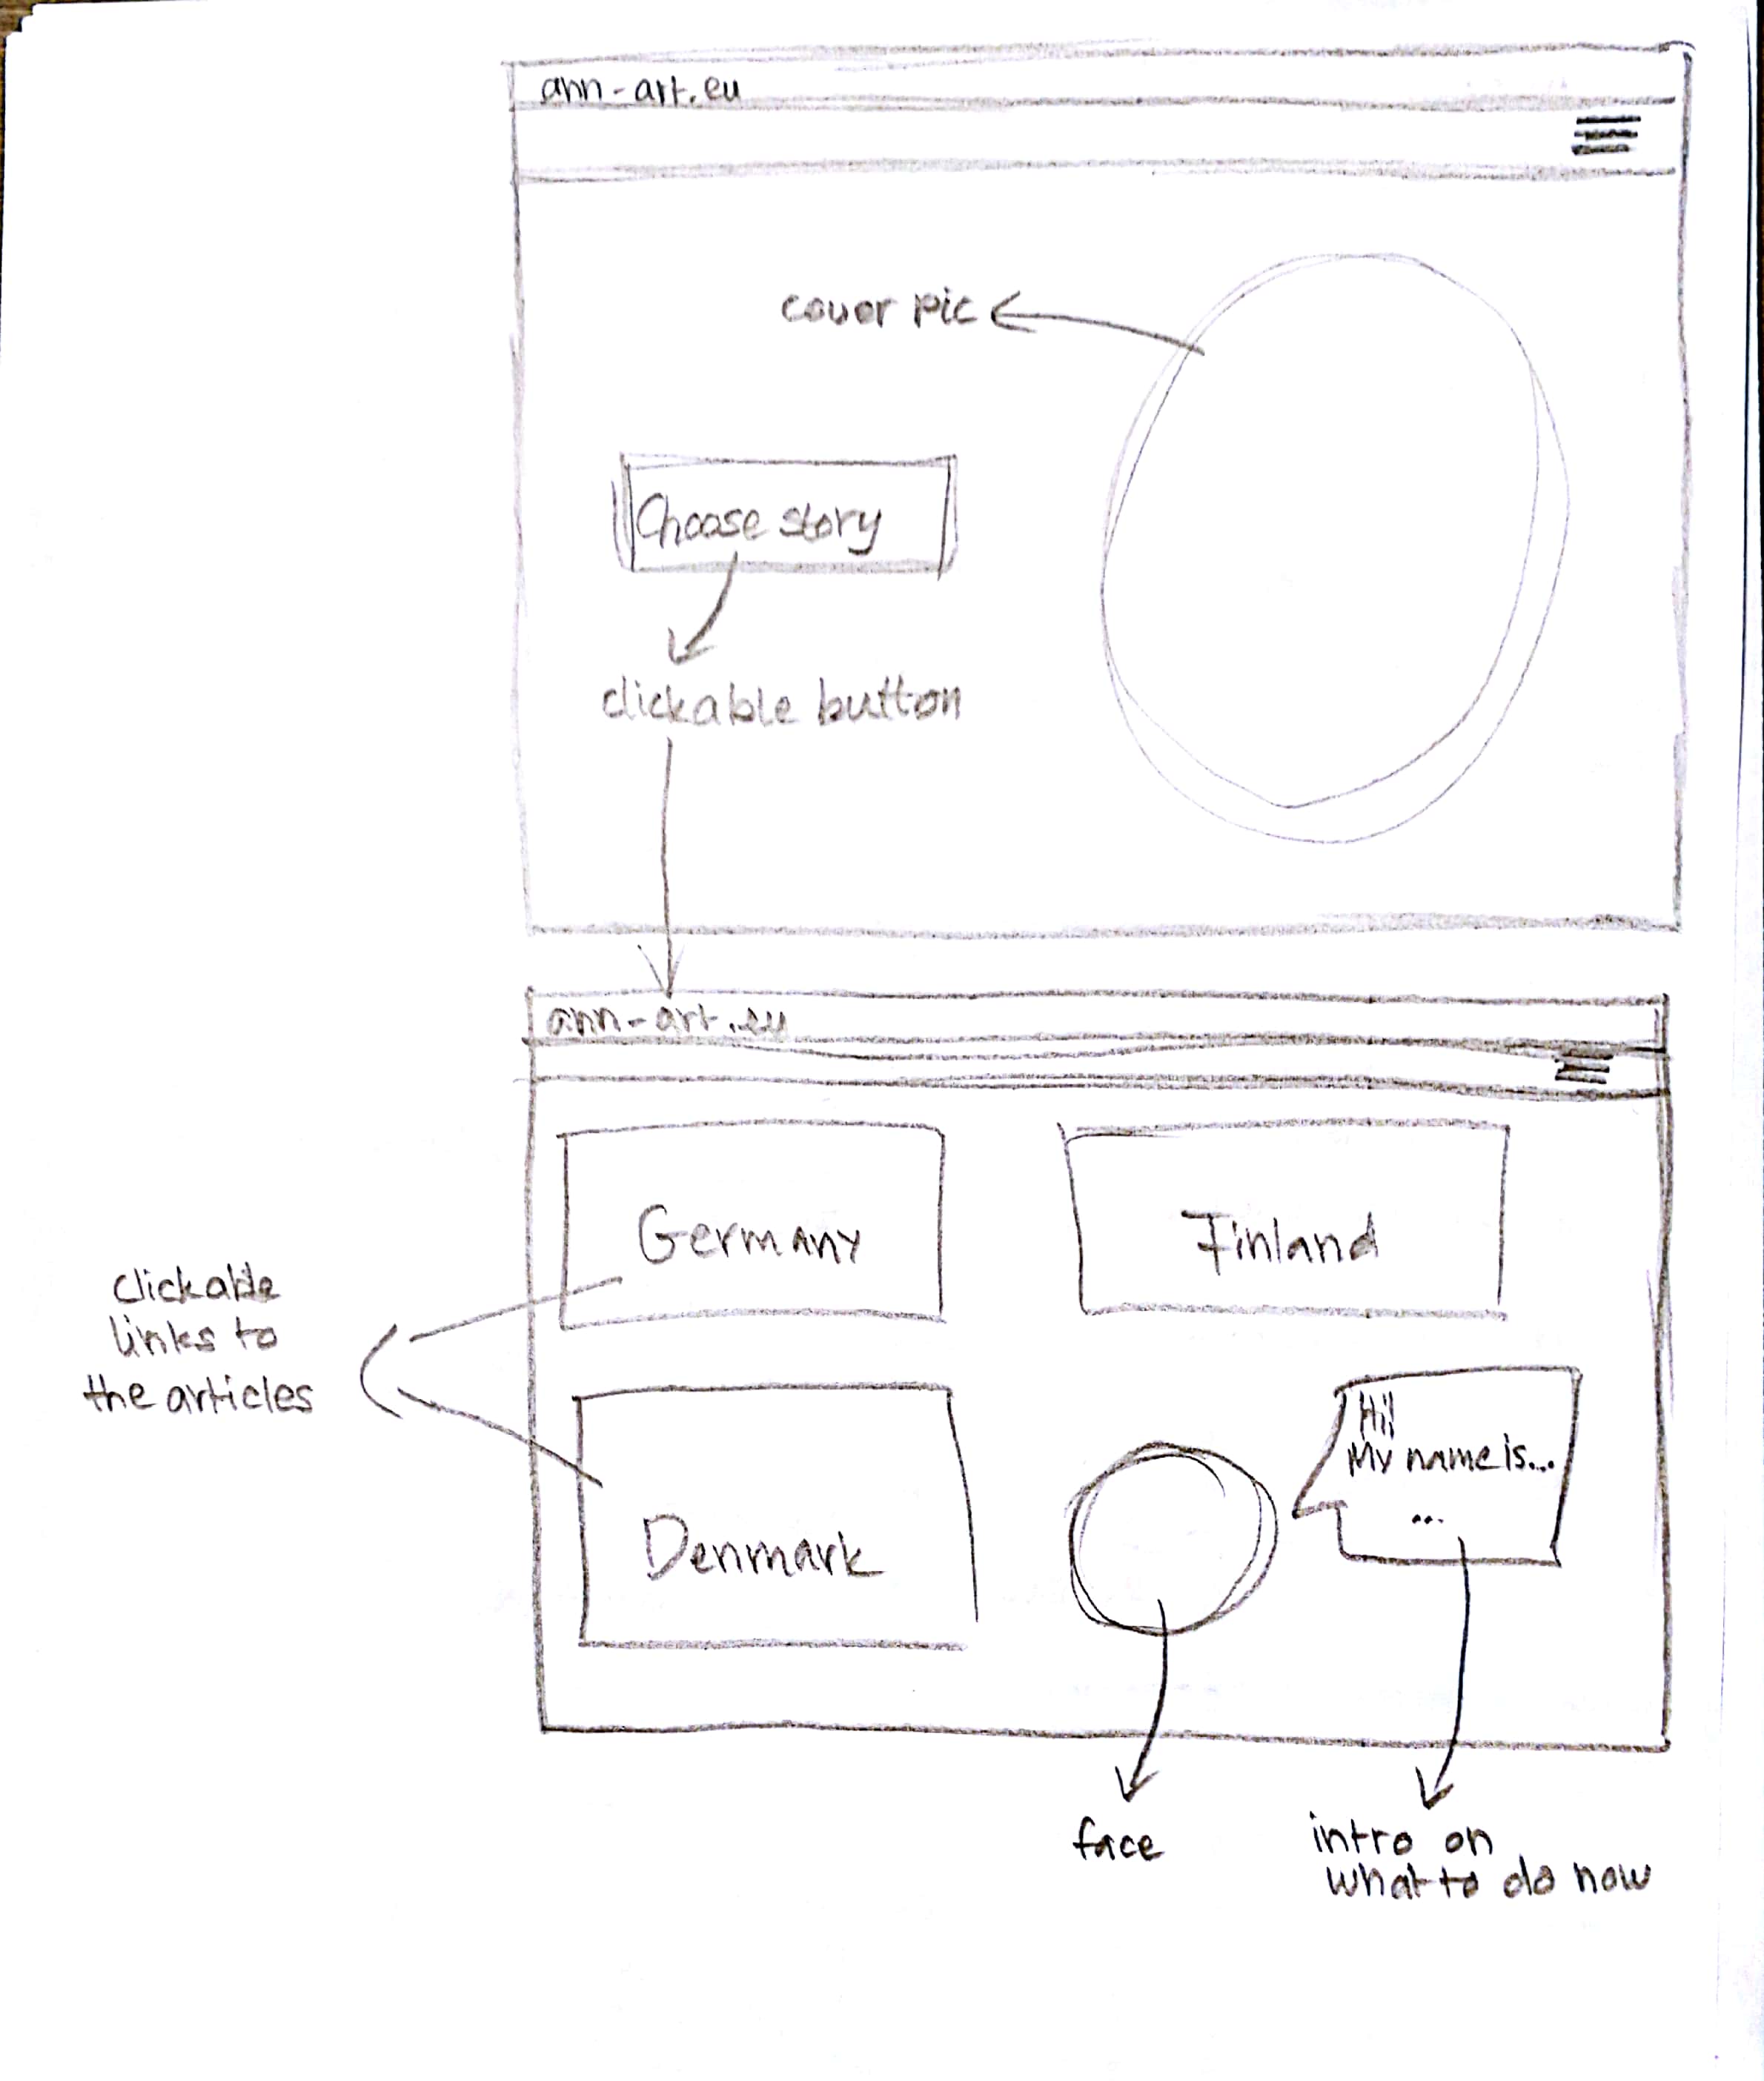 ann-art.eu
cover pic
Choose story
clickable button
ann-art.eu
Germany
Finland
clickable
links to
the articles
Hi!
My name is...
...
Denmark
face
intro on
what to do now